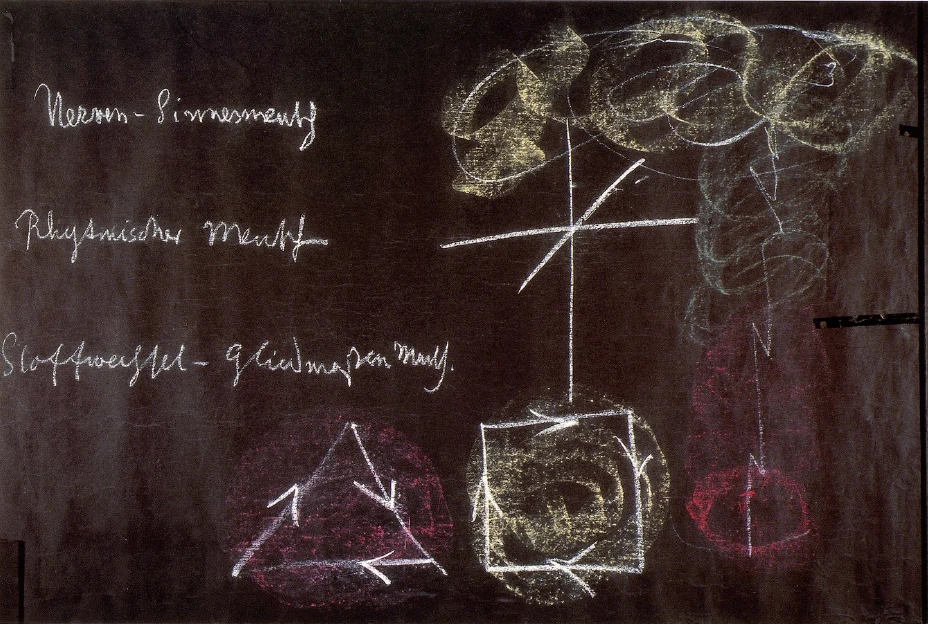 Nerven-Sinnesmensch
Rhytmischer Mensch
Stoffwechsel-Gliedmaßen Mensch.